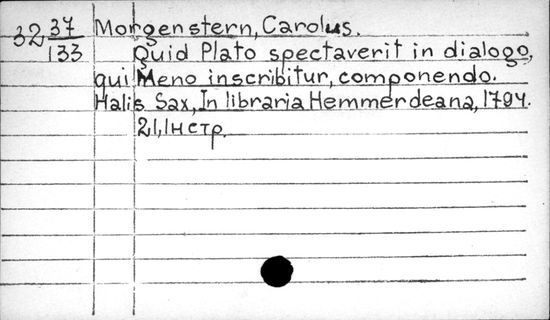 32 37/133 Morgenstern, Carolus.
Quid Plato spectaverit in dialogo,
qui Meno inscribitur, componendo.
Halis Sax, In libraria Hemmerdeana, 1794.
21, 1н стр.